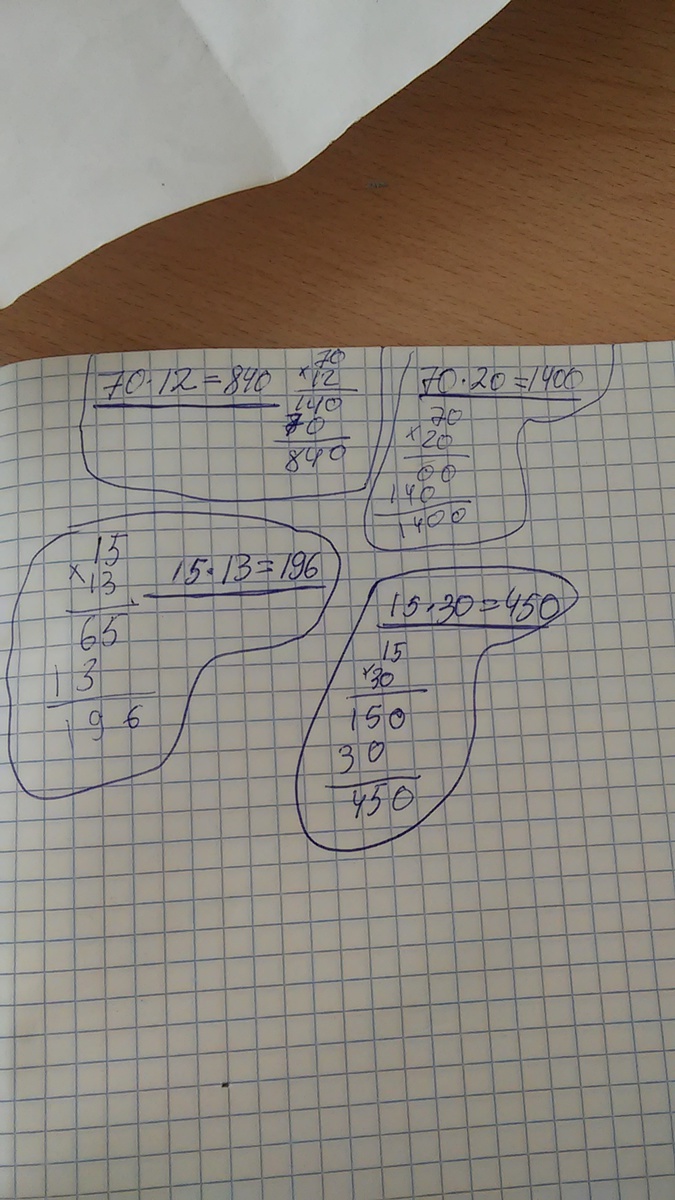 70·12=840
70
×12
140
70
840
70·20=1400
70
×20
00
140
1400
15
×13
65
13
196
15·13=196
15·30=450
15
×30
150
30
450